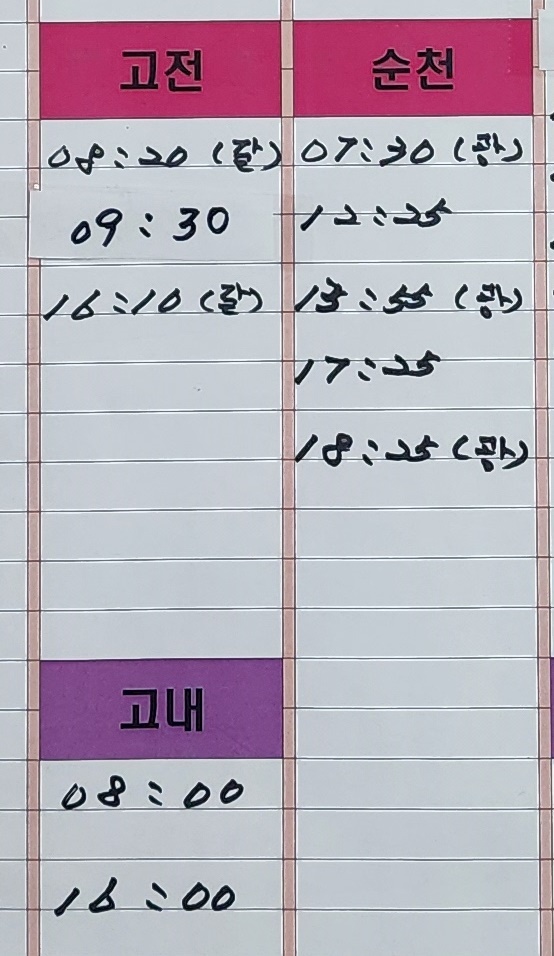 고전
08:20 (갈)
09:30
16:10 (갈)
순천
07:30 (광)
12:25
13:55 (광)
17:25
18:25 (광)
고내
08:00
16:00